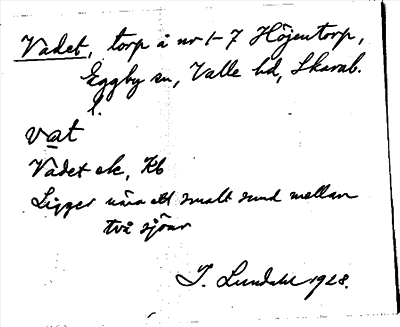 Vadet, torp å nr 1-7 Höjentorp,
Eggby sn, Valle hd, Skarab.
l.
vat
Vadet ek, Kb
Ligger nära ett smalt sund mellan
två sjöar
I. Lundahl 1928.